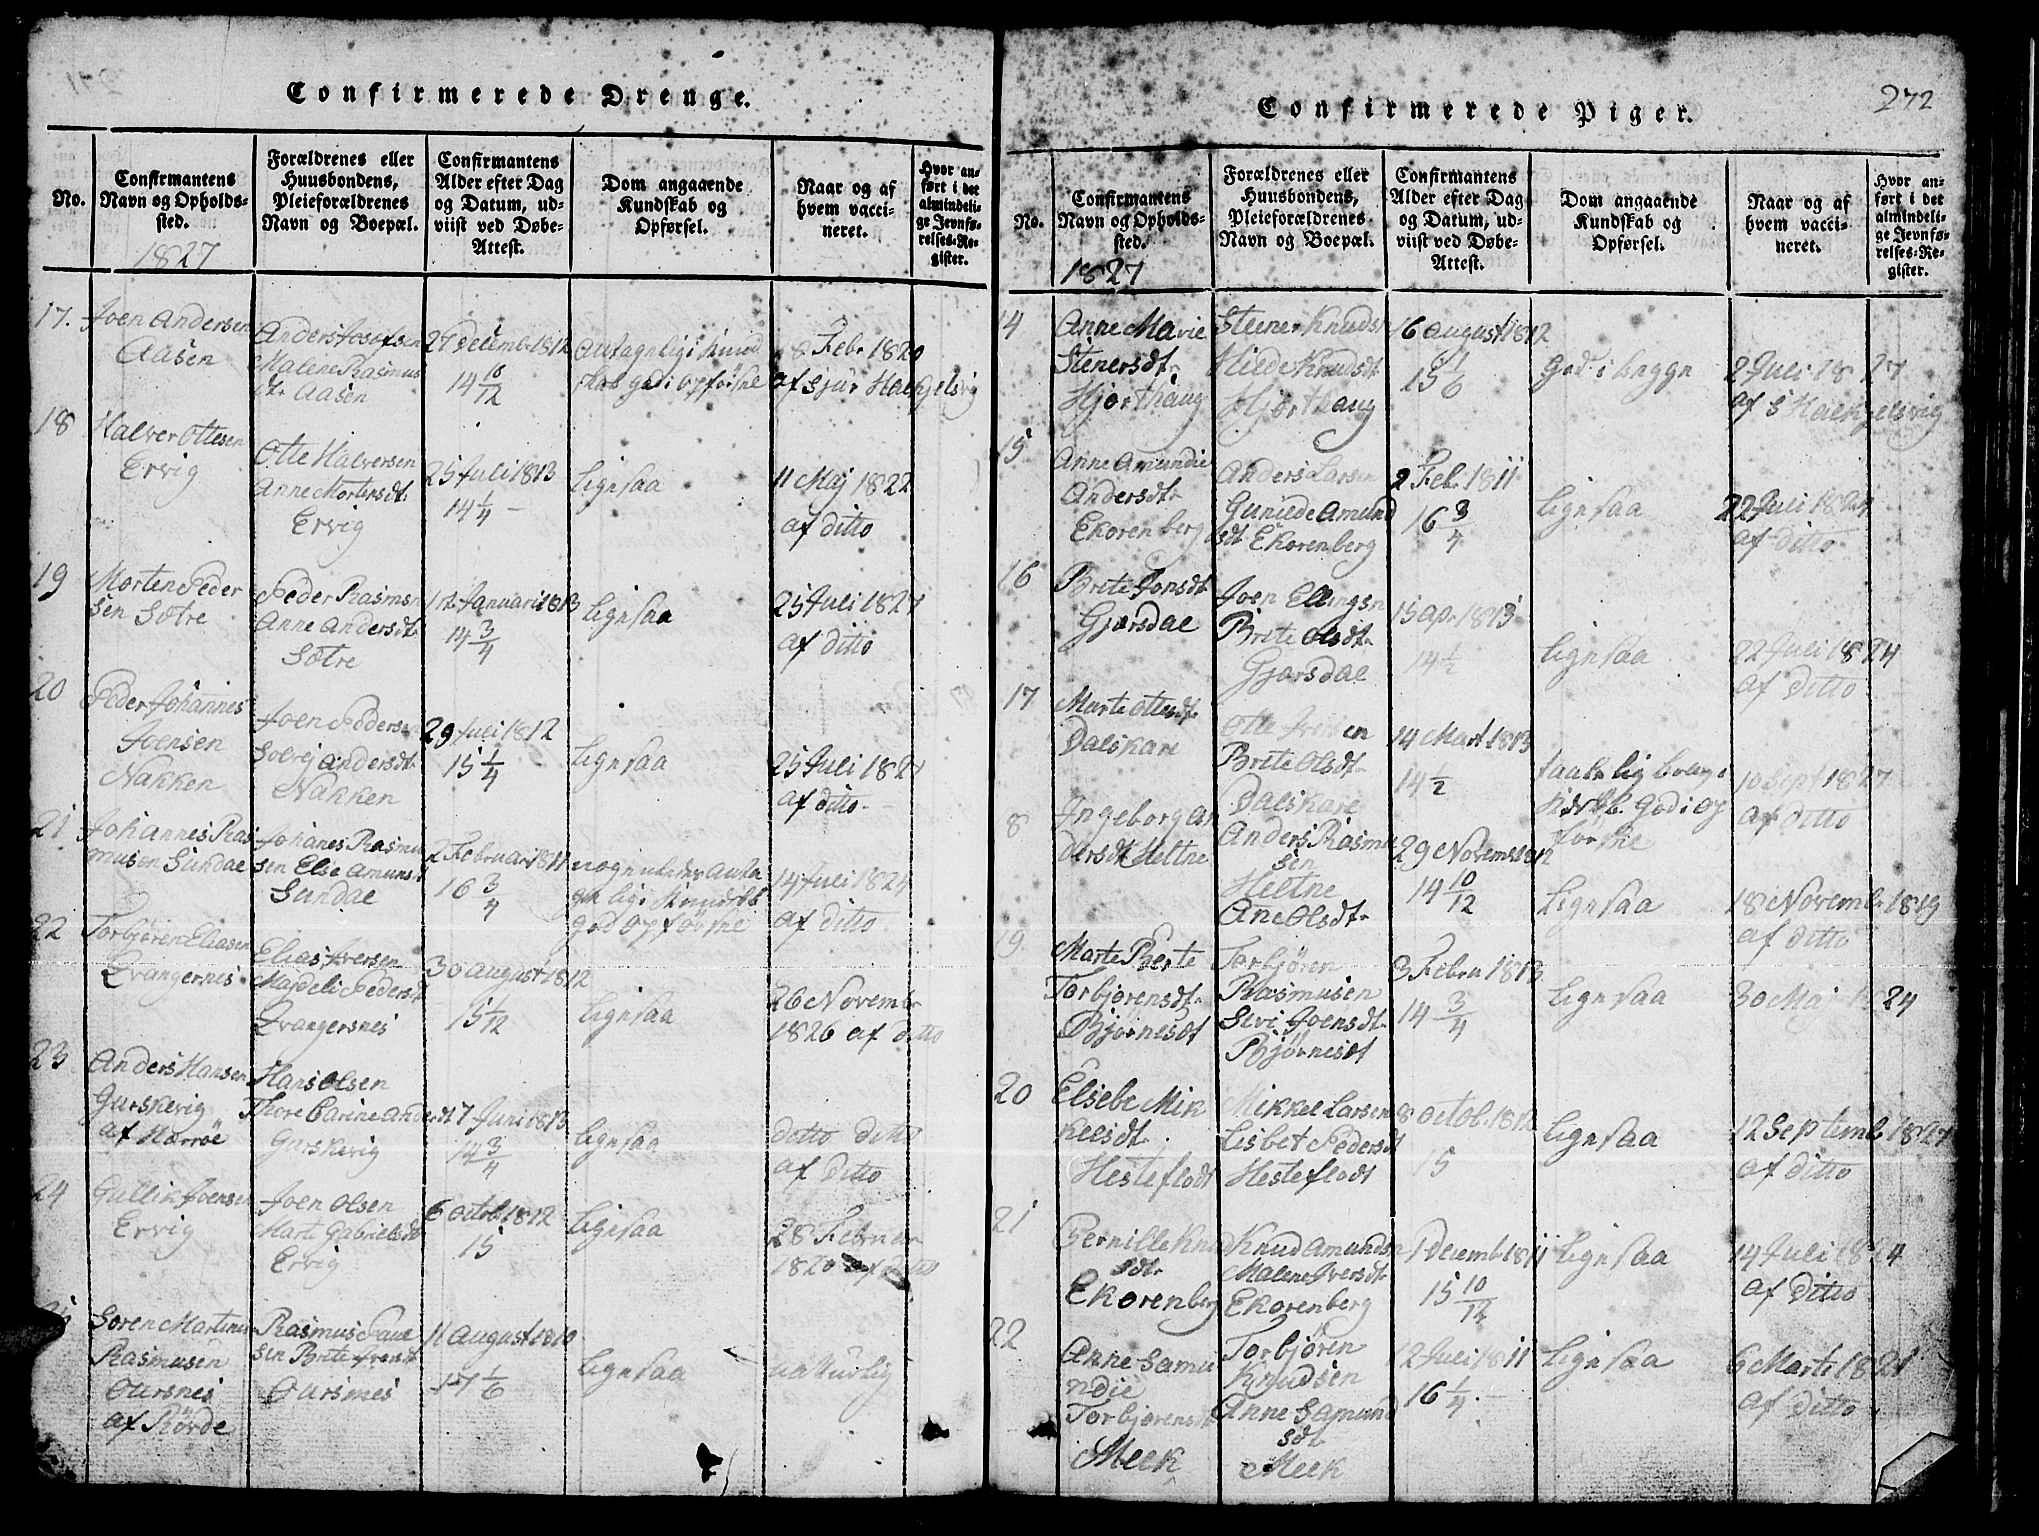 272
Confirmerede Drenge.
No.
Confirmantens
Navn og Opholds-
sted.
1827
Forældrenes eller
Huusbondens,
Pleieforældrenes
Navn og Boepæl.
Confirmantens
Alder efter Dag
og Datum, ud-
viist ved Døbe-
Attest.
Dom angaaende
Kundskab og
Opførsel.
Naar og af
hvem vacci-
neret.
Hvor an-
ført i det
almindeli-
ge Jevnfø-
relses-Re-
gister.
17.
Joen Andersen
Aasen
Anders Josefsen
Malene Rasmus
dtr Aasen
27 Decemb 1812
14 10/12
Antagelig i Kund
skab god i opførsle
8 Febr 1820
af Sjur Halkjelsvig
18
Halver Ottesen
Ervig
Otte Halversen
Anne Mortensdt
Ervig
25 Juli 1813
14 1/4
Lignsaa
11 Maj 1822
af ditto
19
Morten Peder
sen Sætre
Peder Rasmsn
Anne Andersdt
Sætre
12 Januari 1813
14 3/4
Lignsaa
25 Juli 1827
af ditto
20
Peder Johannes
Joensen
Nakken
Joen Pedersen
Solvej Andersdt
Nakken
29 Juli 1812
15 1/4
Lignsaa
25 Juli 1827
af ditto
21
Johannes Ras
musen Sundal
Johanes Rasmu
sen Else Amunsd
Sundal
2 Februar 1811
16 3/4
nogenleder anta
gelig i Kundskb
god opførsle
14 Juli 1824
af ditto
22
Torbjøren Eliasen
Qvangernes
Elias Iversen
Mardeli Pedersdt
Qvangersnes
30 August 1812
15 1/12
Lignsaa
26 Novembr
1826 af ditto
23
Anders Hansen
Gurskevig
af Harrøe
Hans Olsen
Thore Carine Anderdt
Gurskevig
17 Juni 1813
14 3/4
Lignsaa
ditto ditto
af ditto
24
Gullik Joensen
Ervig
Joen Olsen
Marte Gabrielsdt
Ervig
6 Octob 1812
15
Lignsaa
28 Februar
1820 af ditto
Soren Martinus
Rasmusen
Oursnes
af Rørde
Rasmus Poul
sen Brite Iversdt
Oursnes
11 August 1810
17 1/6
Lignsaa
naturlig
Confirmerede Piger.
No.
Confirmantens
Navn og Opholds-
sted.
1827
Forældrenes eller
Huusbondens,
Pleieforældrenes
Navn og Boepæl.
Confirmantens
Alder efter Dag
og Datum, ud-
viist ved Døbe-
Attest.
Dom angaaende
Kundskab og
Opførsel.
Naar og af
hvem vacci-
neret.
Hvor an-
ført i det
almindeli-
ge Jevnfø-
relses-Re-
gister.
14
Anne Marie
Stenersdt
Hjorthaug
Steener Knudsn
Hilde Knudsdt
Hjorthaug
16 August 1812
15 1/6
God i begge
2 Juli 1827
af S Halkjelsvig
15
Anne Amundie
Andersdt
Ekorenberg
Anders Larsen
Gunilde Amund
sdt Ekorenberg
2 Feb 1811
16 3/4
Lignsaa
22 Juli 1824
af ditto
16
Brite Jonsdt
Gjørsdal
Joen Ellingsn
Brite Olsdt
Gjørsdal
15 apr 1813
14 1/2
Lignsaa
22 Juli 1824
af ditto
17
Marte Ottesdt
Dalskare
Otte Iversen
Brite Olsdt
Dalskare
14 Mart 1813
14 1/2
taalelig
God i op
førsle
10 Sept 1827
af ditto
8
Ingeborg An
dersdt Heltne
Anders Rasmu
sen
Heltne
Ane Olsdt
29 Novemb 1812
14 10/12
Lignsaa
18 Novemb 1819
af ditto
19
Marte Berte
Torbjørensdt
Bjørnesdt
Torbjøren
Rasmusen
Siri Joensdt
Bjørnesdt
3 Febru 1813
14 3/4
Lignsaa
30 Maj 1824
20
Elsebe Mik
kelsdt
Hesteflodt
Mikkel Larsen
Lisbet Pedersdt
Hesteflodt
8 Octob. 1812
15
Lignsaa
12 Septemb 1827
af ditto
21
Pernille Knu
sdt
Ekorenberg
Knud Amundsn
Malene Iversdt
Ekorenberg
1 Decemb 1811
15 10/12
Lignsaa
14 Juli 1824
af ditto
22
Anne Samu
ndie
Torbjørensdt
Meek
Torbjøren
Knudsen
Anne Samund
sdt
Meek
12 Juli 1811
16 1/4
Lignsaa
6 Marts 1821
af ditto